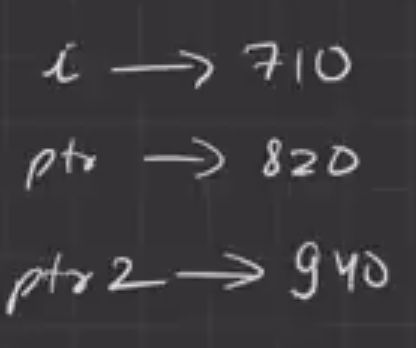 i → 710
ptr → 820
ptr 2 → 940